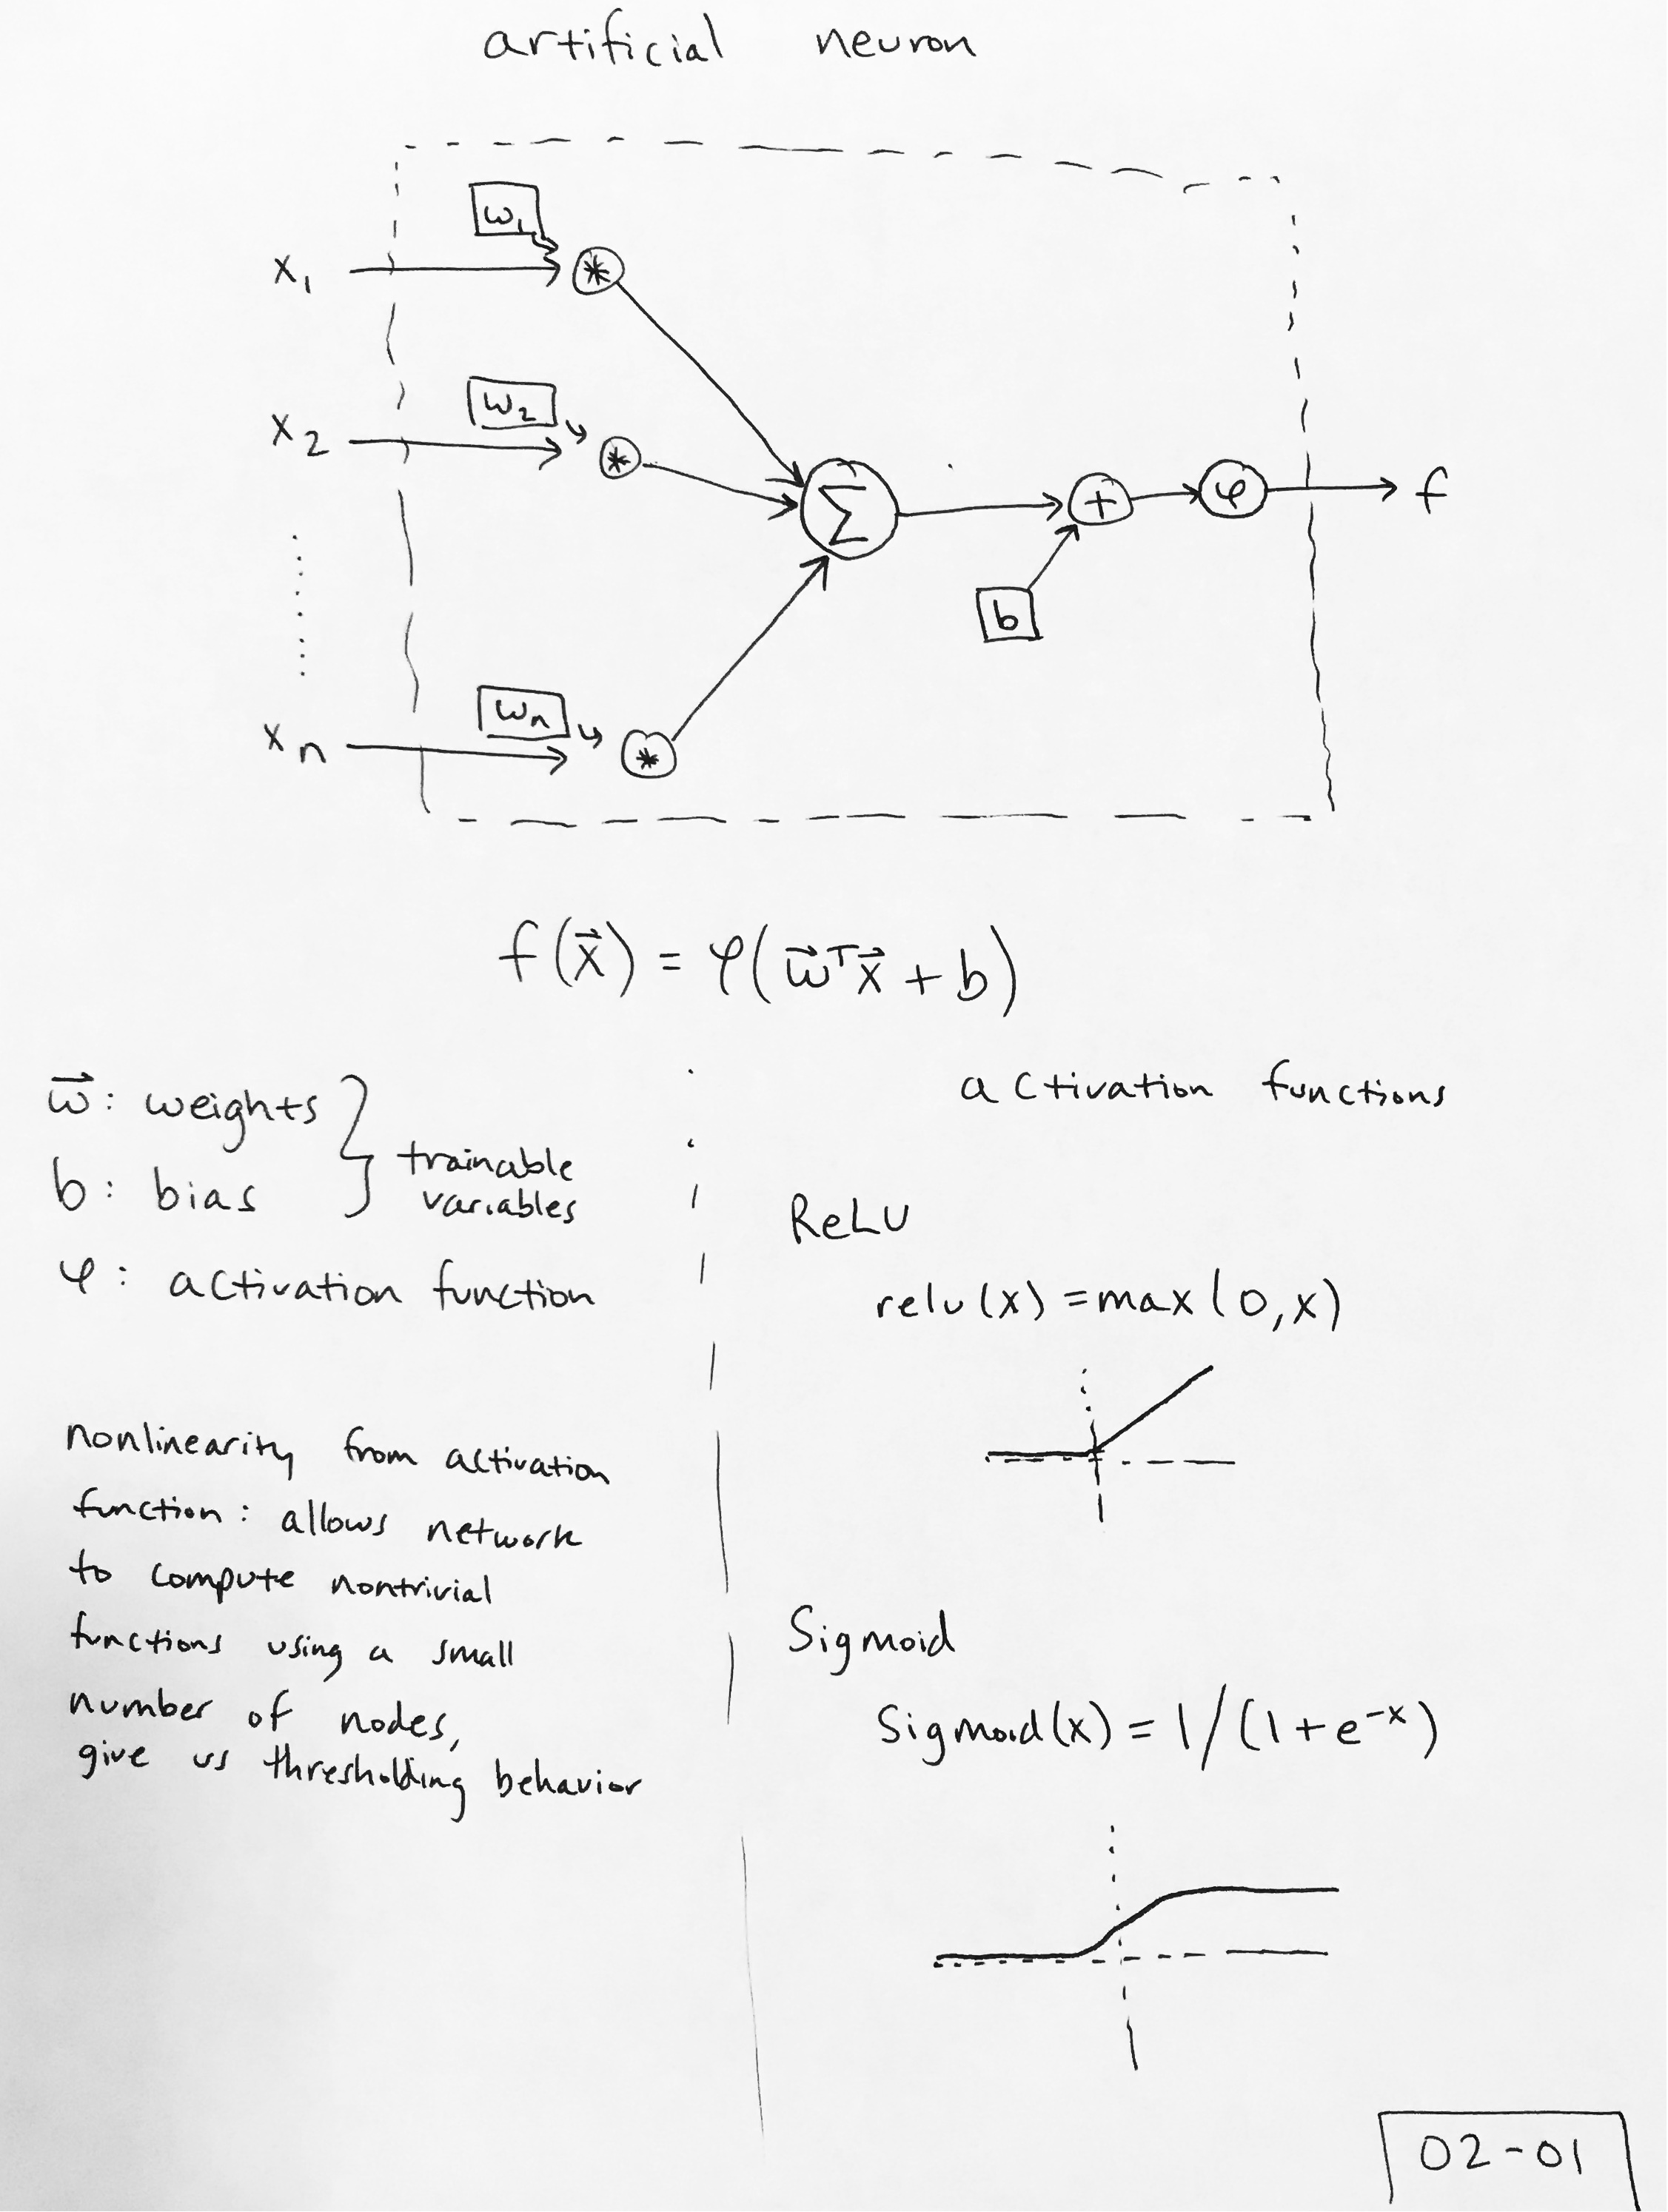 artificial neuron
w₁
x₁ *
w₂
x₂ *
Σ + φ f
b
wₙ
xₙ *
f(x⃗) = φ(w⃗ᵀx⃗ + b)
w⃗: weights
b: bias
trainable
variables
φ: activation function
nonlinearity from activation
function: allows network
to compute nontrivial
functions using a small
number of nodes,
give us thresholding behavior
activation functions
ReLU
relu(x) = max(0,x)
Sigmoid
Sigmoid(x) = 1/(1+e⁻ˣ)
02-01